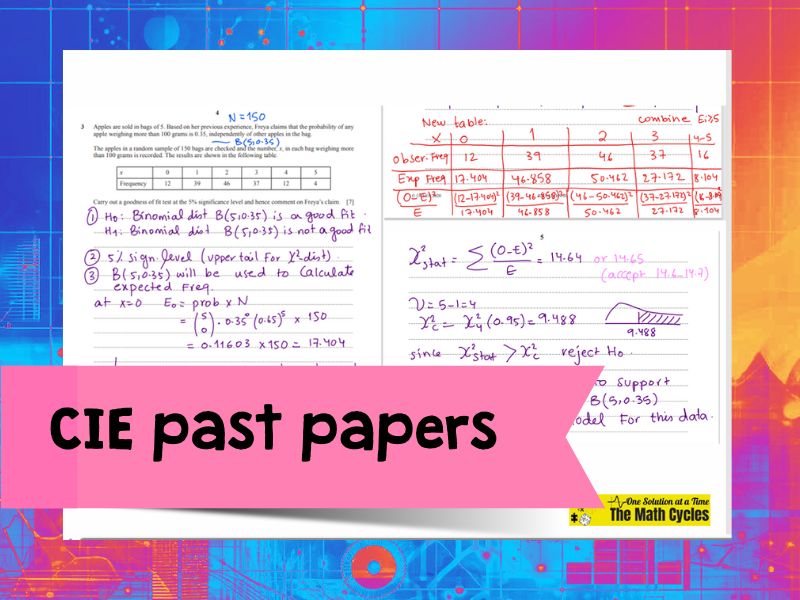 4
N=150
3 Apples are sold in bags of 5. Based on her previous experience, Freya claims that the probability of any
apple weighing more than 100 grams is 0.35, independently of other apples in the bag.
B(5,0.35)
The apples in a random sample of 150 bags are checked and the number, x, in each bag weighing more
than 100 grams is recorded. The results are shown in the following table.
x 0 1 2 3 4 5
Frequency 12 39 46 37 12 4
Carry out a goodness of fit test at the 5% significance level and hence comment on Freya's claim. [7]
① H₀: Binomial dist B(5,0.35) is a good fit.
H₁: Binomial dist B(5,0.35) is not a good fit
② 5% sign. level (upper tail For χ²-dist).
③ B(5,0.35) will be used to Calculate
expected Freq.
at x=0 E₀ = prob x N
= (5 0) · 0.35⁰ (0.65)⁵ x 150
= 0.11603 x150 = 17.404
New table: combine Ei≥5
X 0 1 2 3 4-5
Obser. Freq 12 39 46 37 16
Exp Freq 17.404 46.858 50.462 27.172 8.104
(O-E)²/E (12-17.404)²/17.404 (39-46.858)²/46.858 (46-50.462)²/50.462 (37-27.172)²/27.172 (16-8.104)²/8.104
5
χ²stat = Σ (O-E)²/E = 14.64 or 14.65
(accept 14.6-14.7)
ν=5-1=4
χ²c = χ²₄ (0.95) = 9.488
9.488
since χ²stat > χ²c reject H₀.
to support
B(5,0.35)
model For this data.
CIE past papers
One Solution at a Time
The Math Cycles